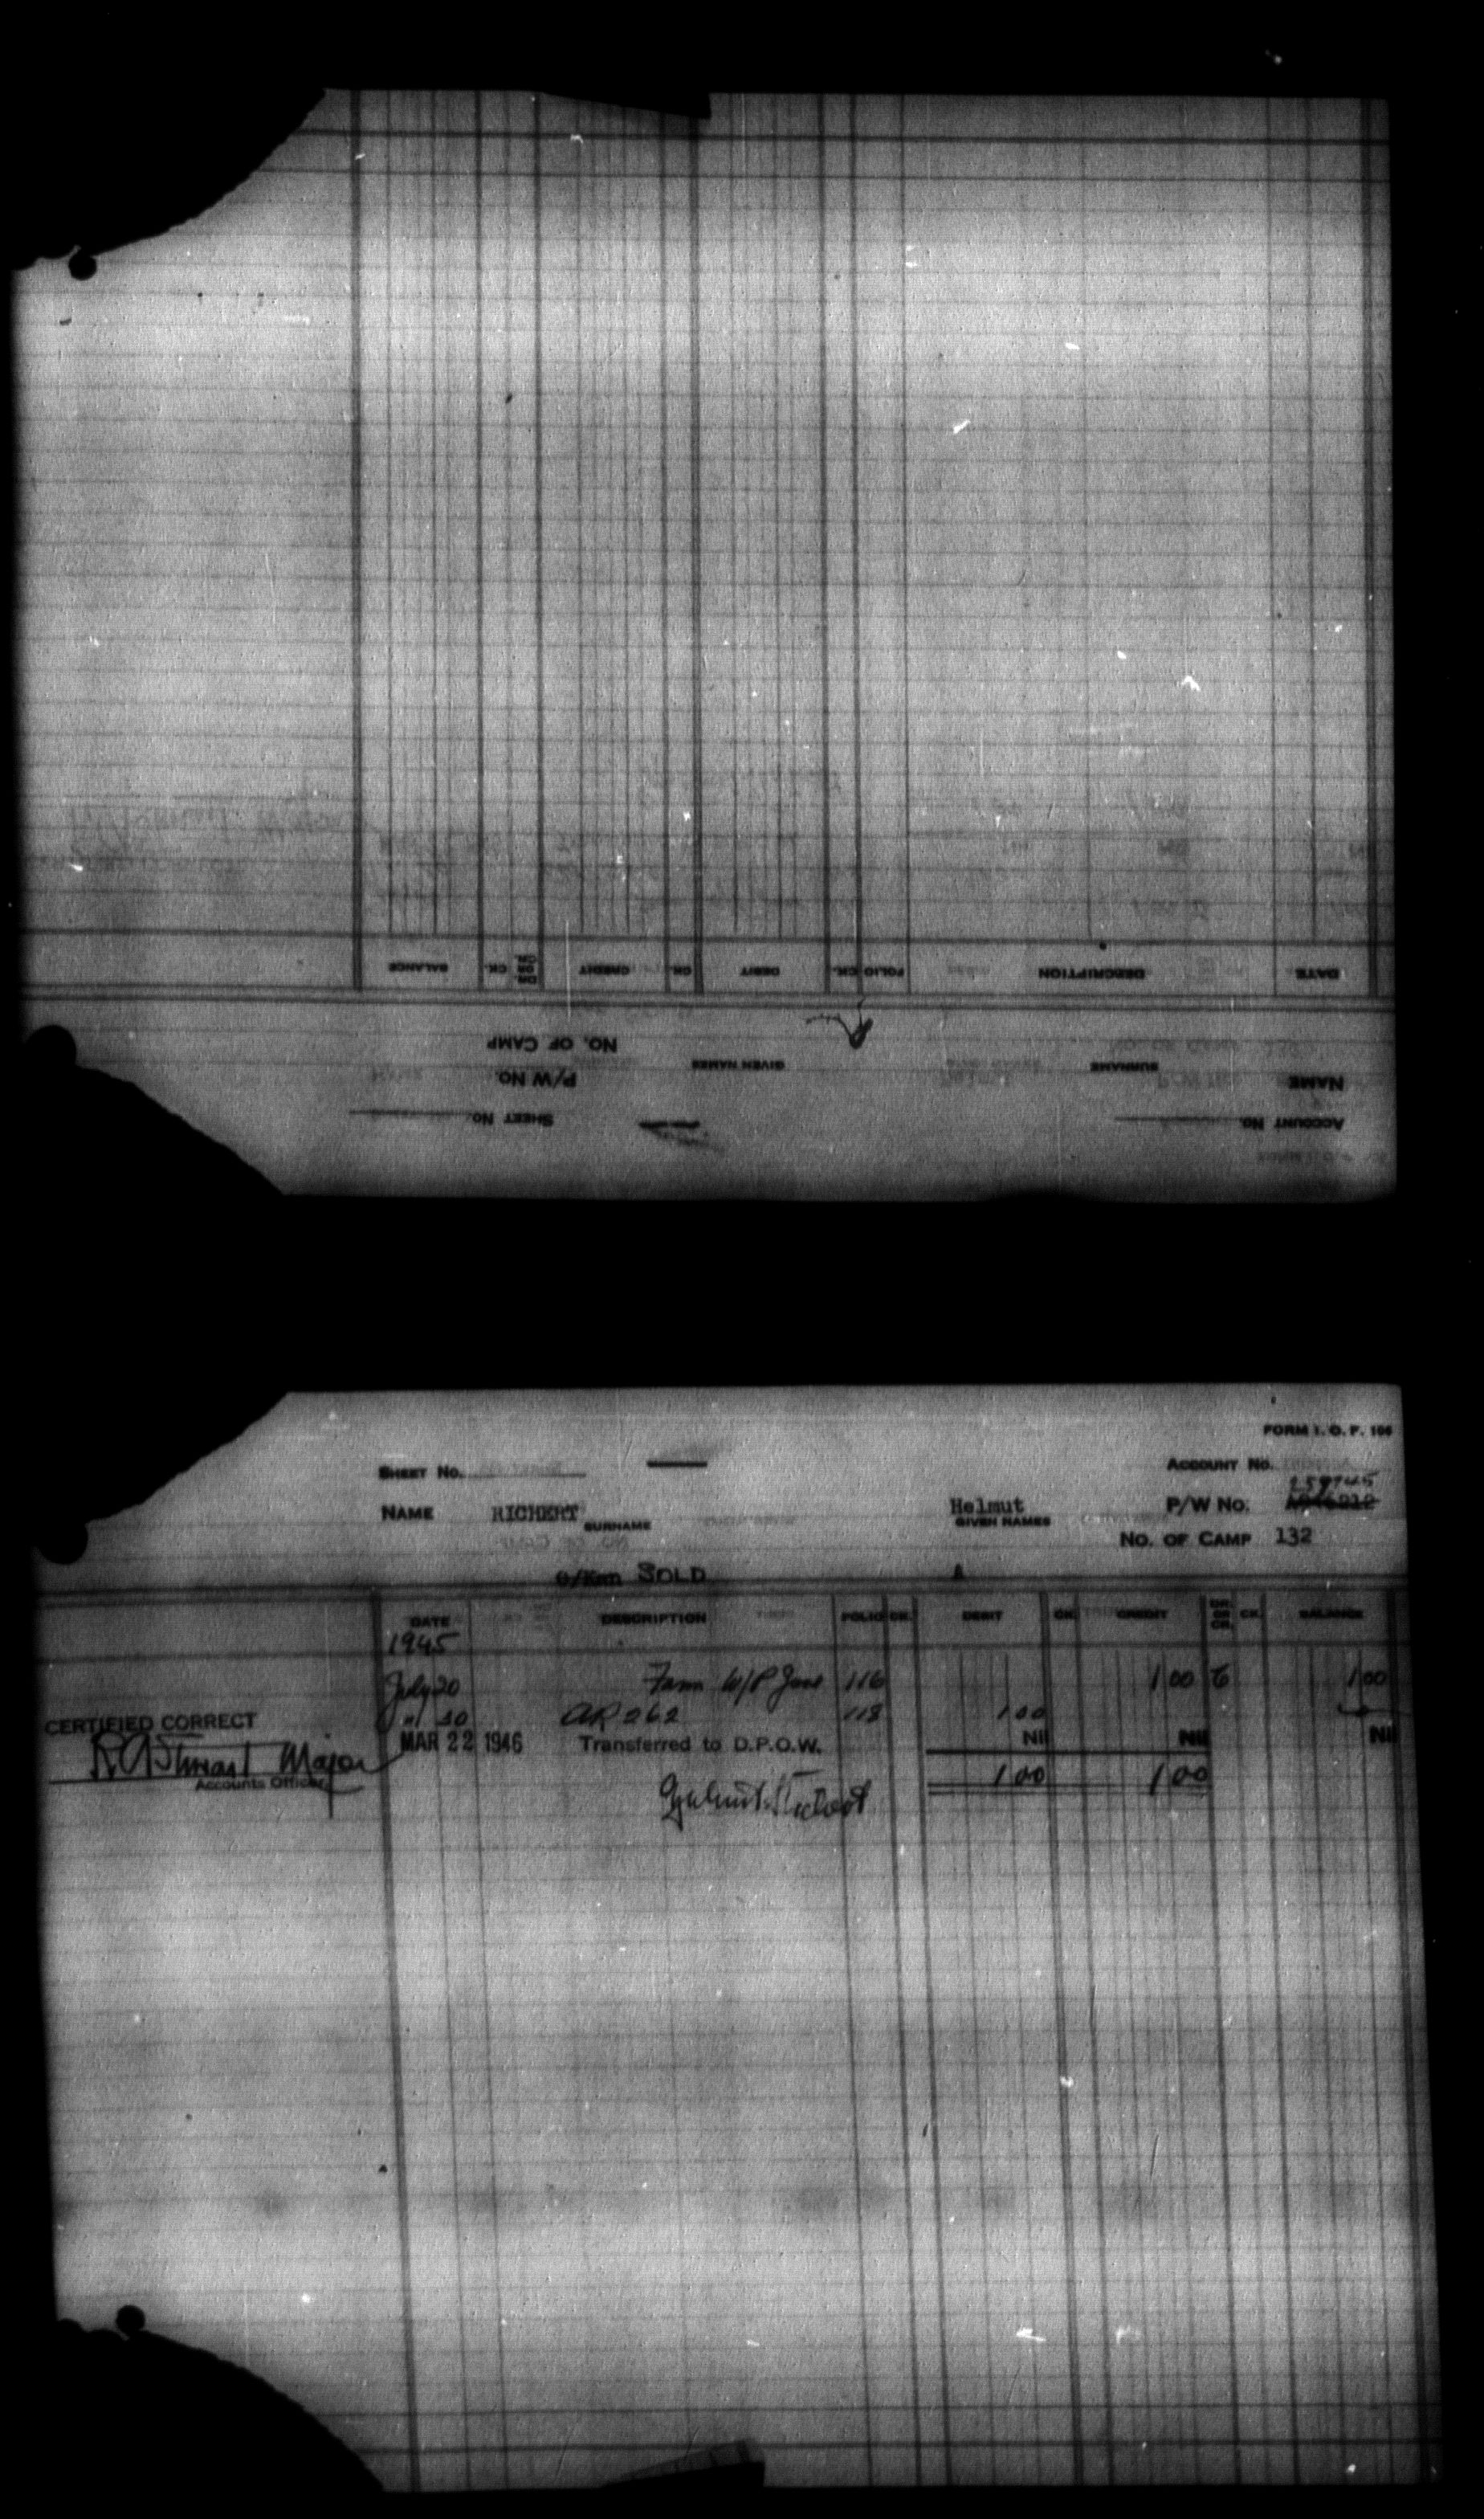 DATE DESCRIPTION FOLIO CK. DEBIT CK. CREDIT DR. OR CR. CK. BALANCE
NO. OF CAMP
NAME SURNAME GIVEN NAMES P/W NO.
ACCOUNT NO. SHEET NO.
FORM I. O. P. 106
SHEET NO. ACCOUNT NO.
NAME RICHERT SURNAME Helmut GIVEN NAMES P/W NO.
NO. OF CAMP 132
SOLD A
DATE DESCRIPTION FOLIO CK. DEBIT CK. CREDIT DR. OR CR. CK. BALANCE
1945
July 20 Farm W/P June 116 1 00 1 00
" 30 AR 262 118 1 00
CERTIFIED CORRECT
MAR 22 1946 Transferred to D.P.O.W. Nil Nil Nil
Major
Accounts Officer
1 00 1 00
Helmut Richert